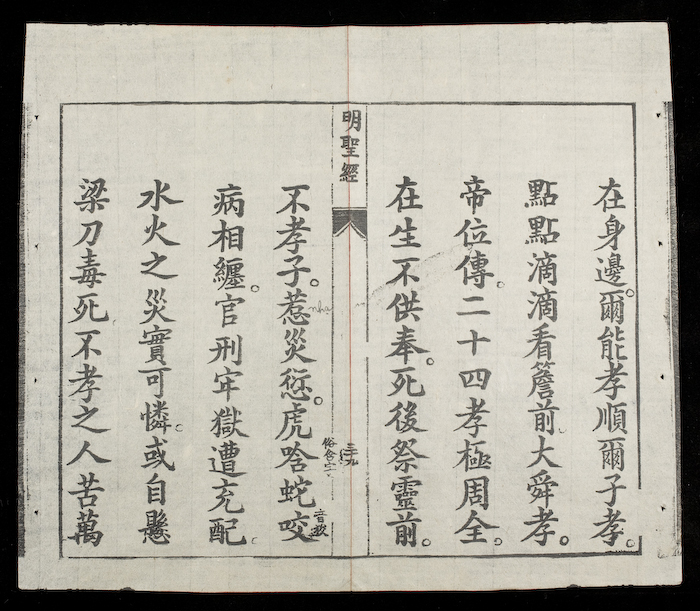 在身邊。爾能孝順爾子孝。
點點滴滴看簷前。大舜孝。
帝位傳。二十四孝極周全。
在生不供奉。死後祭靈前。
明聖經
三九
不孝子。惹災愆。虎唅蛇咬
nha
俗含字
病相纏。官刑牢獄遭充配。
水火之災實可憐。或自懸
梁刀毒死不孝之人苦萬